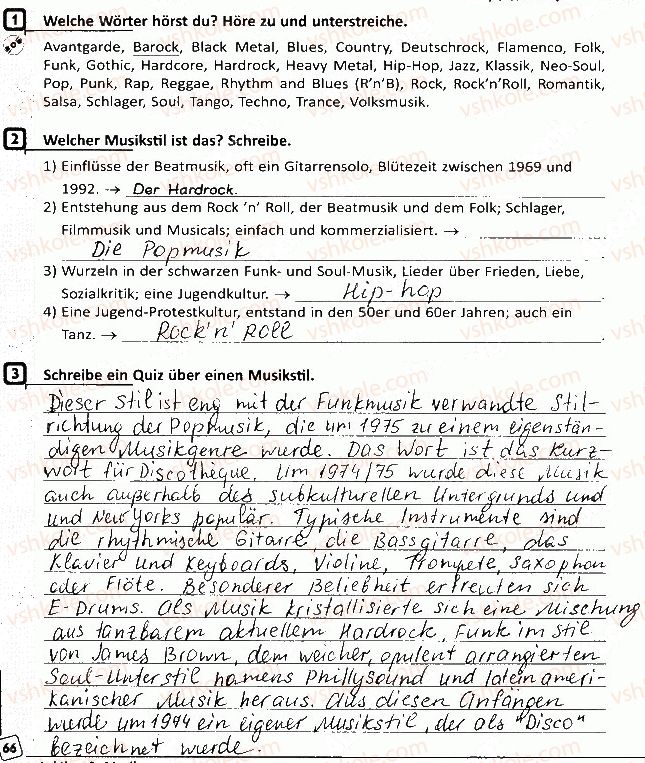 1 Welche Wörter hörst du? Höre zu und unterstreiche.
Avantgarde, Barock, Black Metal, Blues, Country, Deutschrock, Flamenco, Folk,
Funk, Gothic, Hardcore, Hardrock, Heavy Metal, Hip-Hop, Jazz, Klassik, Neo-Soul,
Pop, Punk, Rap, Reggae, Rhythm and Blues (R'n'B), Rock, Rock'n'Roll, Romantik,
Salsa, Schlager, Soul, Tango, Techno, Trance, Volksmusik.
2 Welcher Musikstil ist das? Schreibe.
1) Einflüsse der Beatmusik, oft ein Gitarrensolo, Blütezeit zwischen 1969 und
1992. → Der Hardrock.
2) Entstehung aus dem Rock 'n' Roll, der Beatmusik und dem Folk; Schlager,
Filmmusik und Musicals; einfach und kommerzialisiert. →
Die Popmusik
3) Wurzeln in der schwarzen Funk- und Soul-Musik, Lieder über Frieden, Liebe,
Sozialkritik; eine Jugendkultur. → Hip-hop
4) Eine Jugend-Protestkultur, entstand in den 50er und 60er Jahren; auch ein
Tanz. → Rock'n' Roll
3 Schreibe ein Quiz über einen Musikstil.
Dieser Stil ist eng mit der Funkmusik verwandte Stil-
richtung der Popmusik, die um 1975 zu einem eigenstän-
digen Musikgenre wurde. Das Wort ist das Kurz-
wort für Discothèque. Um 1974/75 wurde diese Musik
auch außerhalb des subkulturellen Untergrunds und
und New Yorks populär. Typische Instrumente sind
die rhythmische Gitarre, die Bassgitarre, das
Klavier und Keyboards, Violine, Trompete, Saxophon
oder Flöte. Besonderer Beliebheit erfreuten sich
E-Drums. Als Musik kristallisierte sich eine Mischung
aus tanzbarem aktuellem Hardrock, Funk im Stil
von James Brown, dem weicher, opulent arrangierten
Soul-Unterstil namens Phillysound und lateinameri-
kanischer Musik heraus. Aus diesen Anfängen
wurde um 1974 ein eigener Musikstil, der als "Disco"
66 bezeichnet wurde.